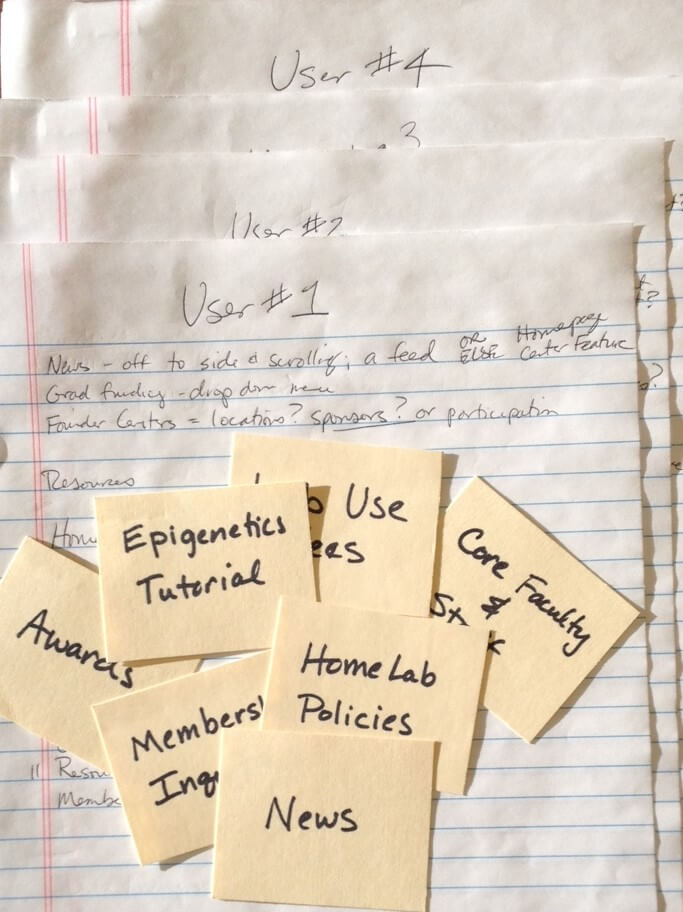 User #4
3
User #2
User #1
News - off to side & scrolling; a feed OR ELSE Homepage Center Feature
Grad funding - drop down menu
Founder Centers = locations? sponsors? or participation
Resources
Hom
Use
ees
Epigenetics
Tutorial
Core Faculty
&
St
Awards
HomeLab
Policies
Members
Inq
News
11 Resou
Membe